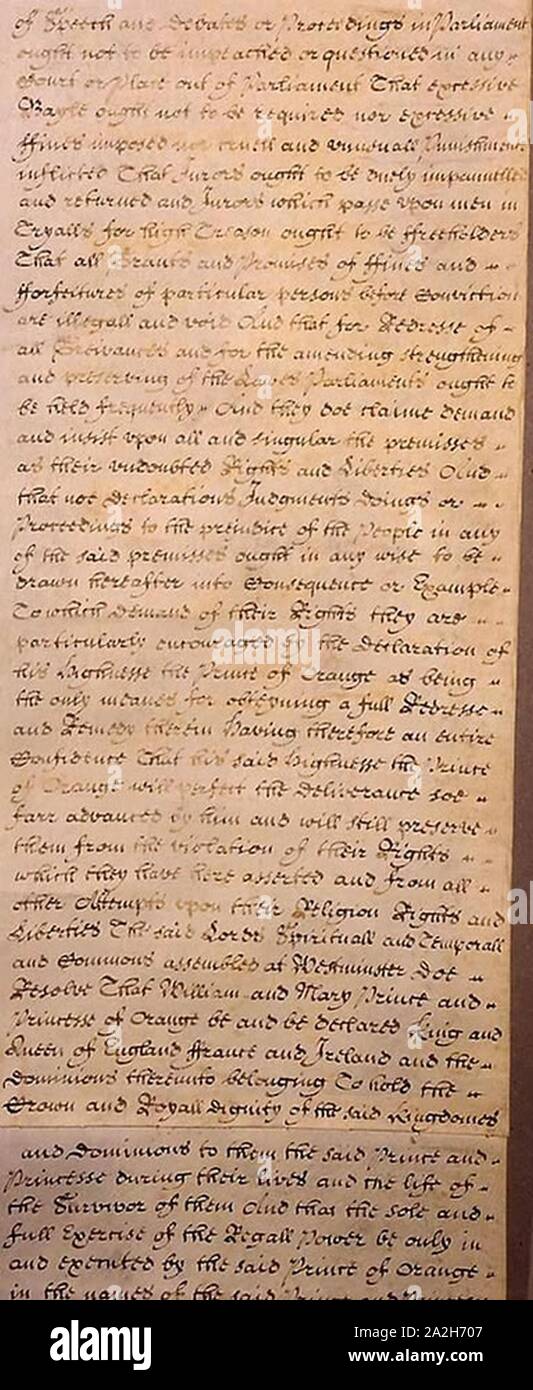 of Speech and Debates or Proceedings in Parliament
ought not to be impeached or questioned in any
Court or Place out of Parliament That excessive
Bayle ought not to be required nor excessive
ffines imposed nor cruell and unusuall Punishments
inflicted That Jurors ought to be duely impannelled
and returned and Jurors which passe upon men in
Tryalls for high Treason ought to be ffreeholders
That all Grants and Promises of ffines and
fforfeitures of particular persons before Conviction
are illegall and void And that for Redresse of
all Greivances and for the amending strengthening
and preserving of the Lawes Parliaments ought to
be held frequently And they doe claime demand
and insist upon all and singular the premisses
as their undoubted Rights and Liberties And
that noe Declarations Judgments Doings or
Proceedings to the prejudice of the People in any
of the said premisses ought in any wise to be
drawn hereafter into Consequence or Example
To which Demand of their Rights they are
particularly encouraged by the Declaration of
his Highnesse the Prince of Orange as being
the only meanes for obteyning a full Redresse
and Remedy therein Having therefore an entire
Confidence That his said Highnesse the Prince
of Orange will perfect the Deliverance soe
farr advanced by him and will still preserve
them from the violation of their Rights
which they have here asserted and from all
other Attempts upon their Religion Rights and
Liberties The said Lords Spirituall and Temporall
and Commons assembled at Westminster Doe
Resolve That William and Mary Prince and
Princesse of Orange be and be declared King and
Queen of England ffrance and Ireland and the
Dominions thereunto belonging To hold the
Crown and Royall Dignity of the said Kingdomes
and Dominions to them the said Prince and
Princesse during their lives and the life of
the Survivor of them And that the sole and
full Exercise of the Regall Power be only in
and executed by the said Prince of Orange
in the names of the said Prince and Princesse
alamy
Image ID: 2A2H707
www.alamy.com